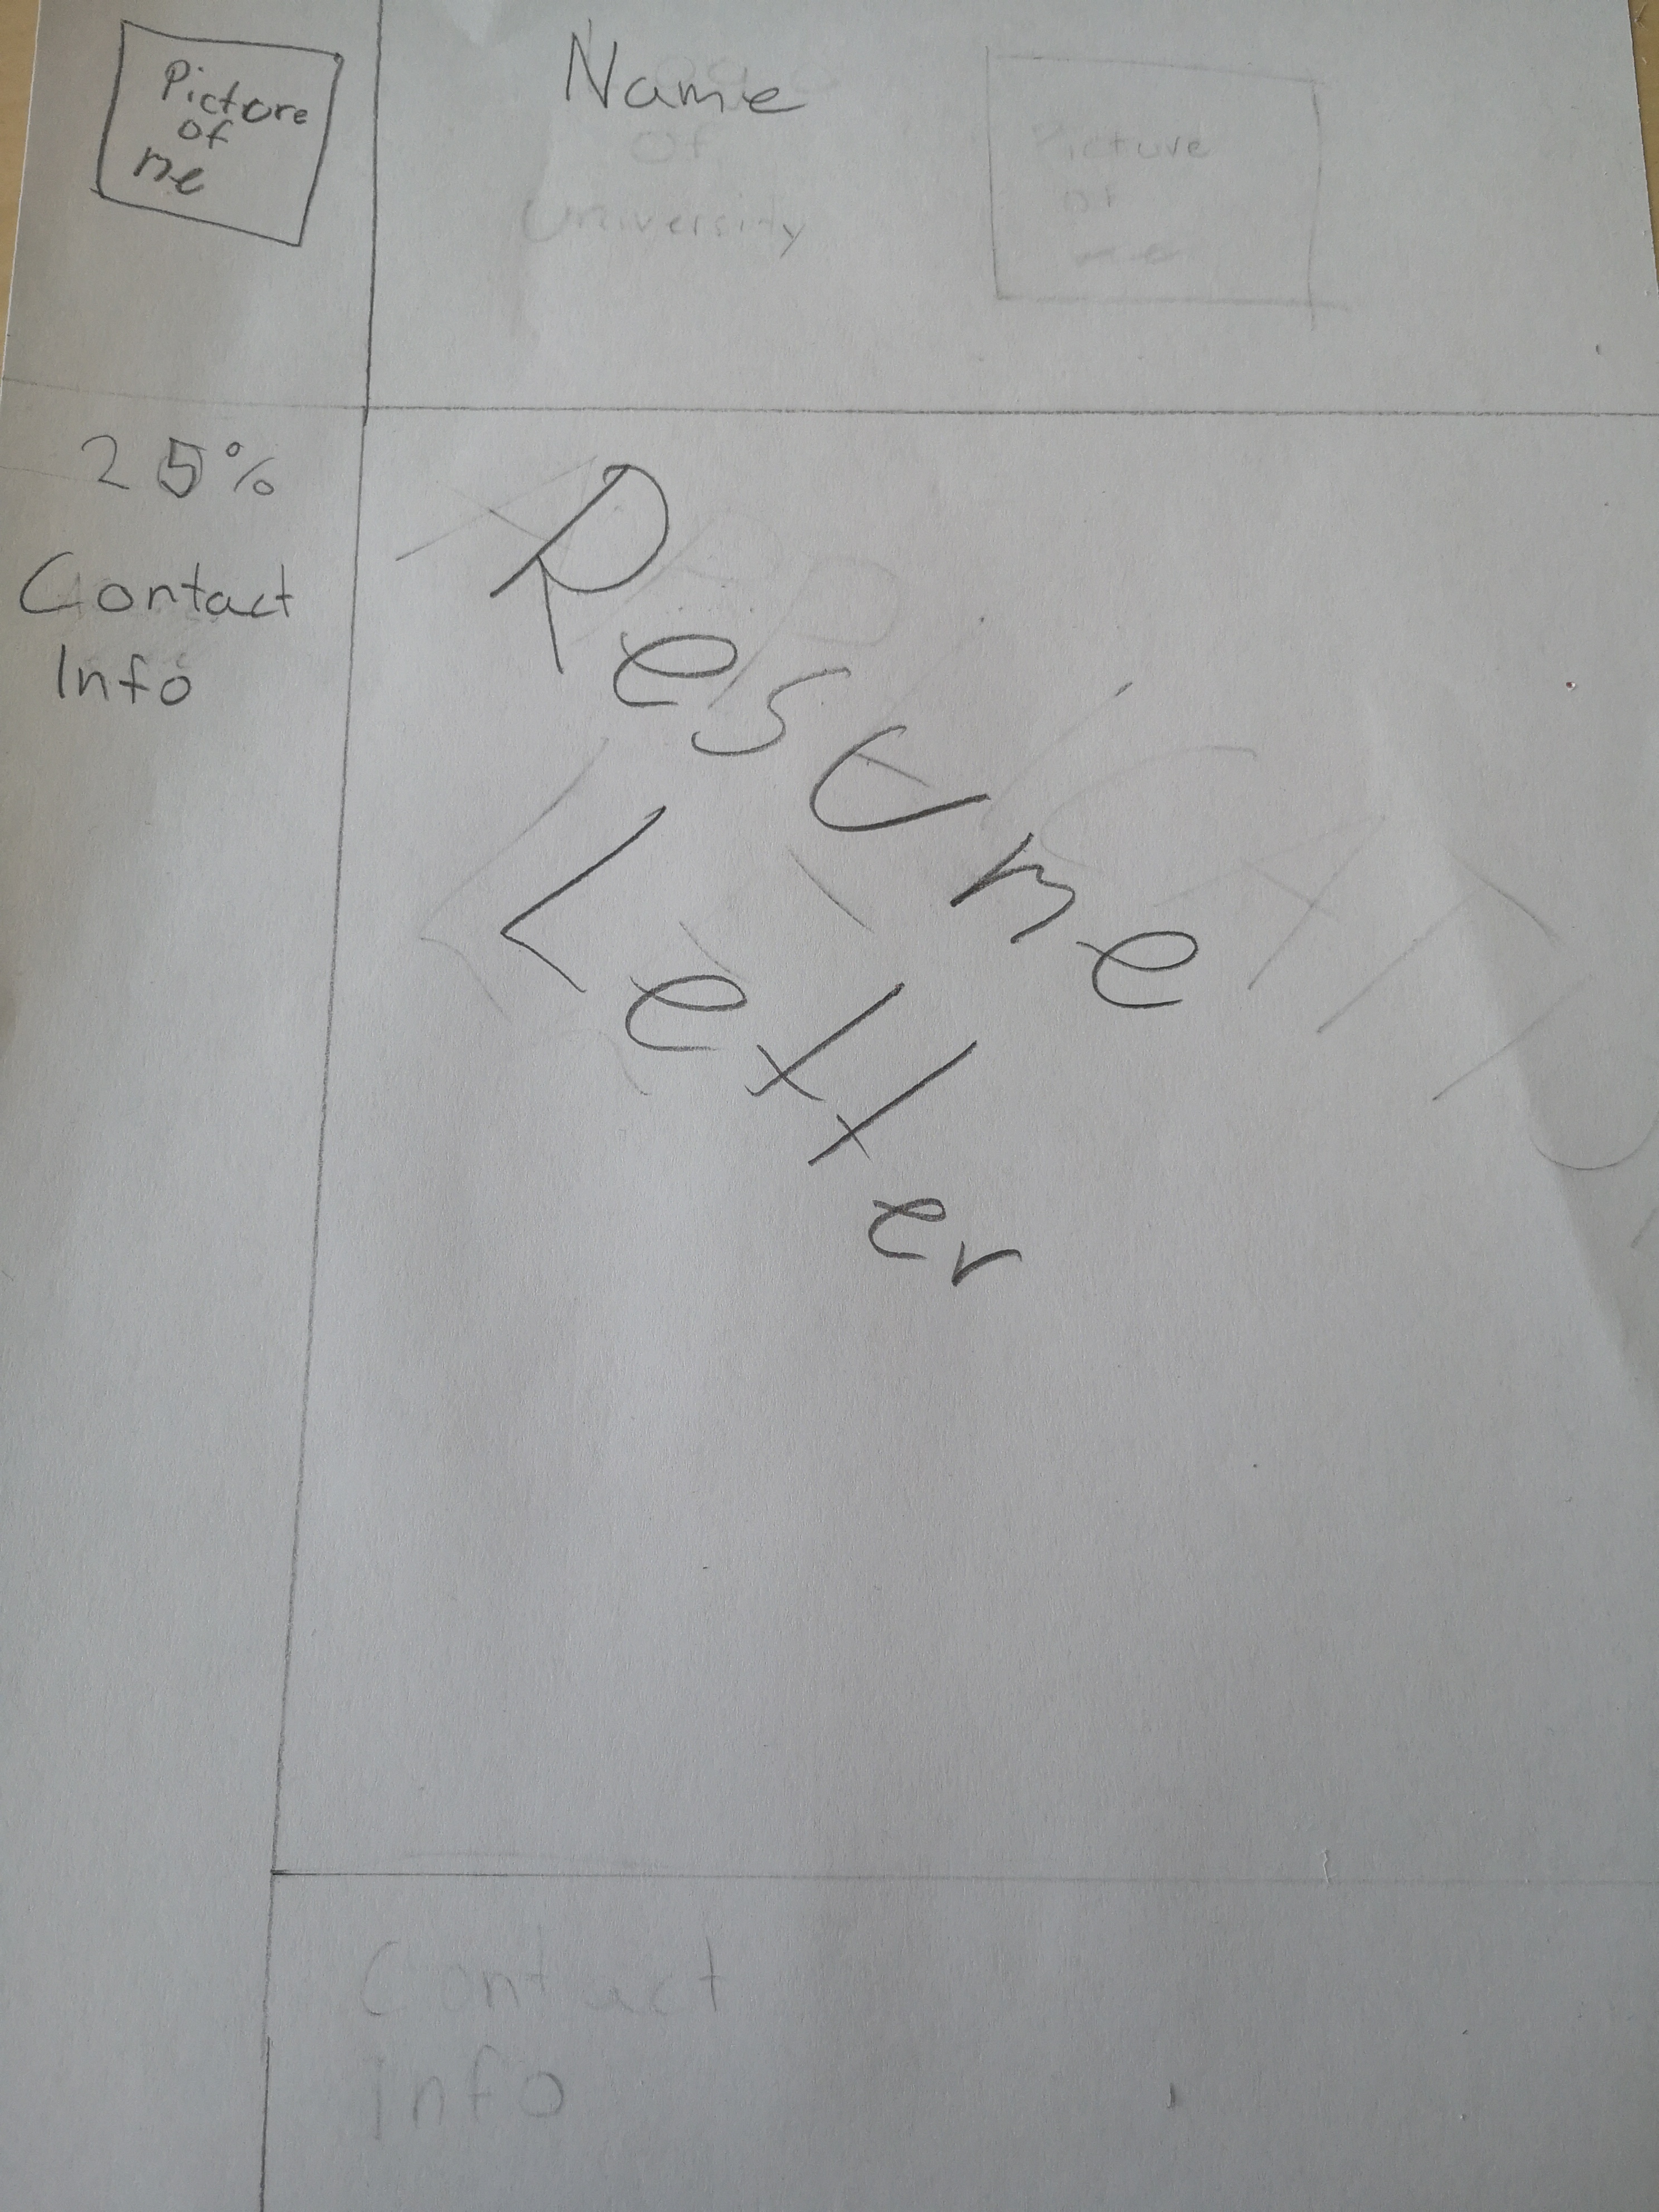 Picture
of
me
Name
of
University
Picture
of
me
25%
Contact
Info
Resume
Letter
Contact
Info